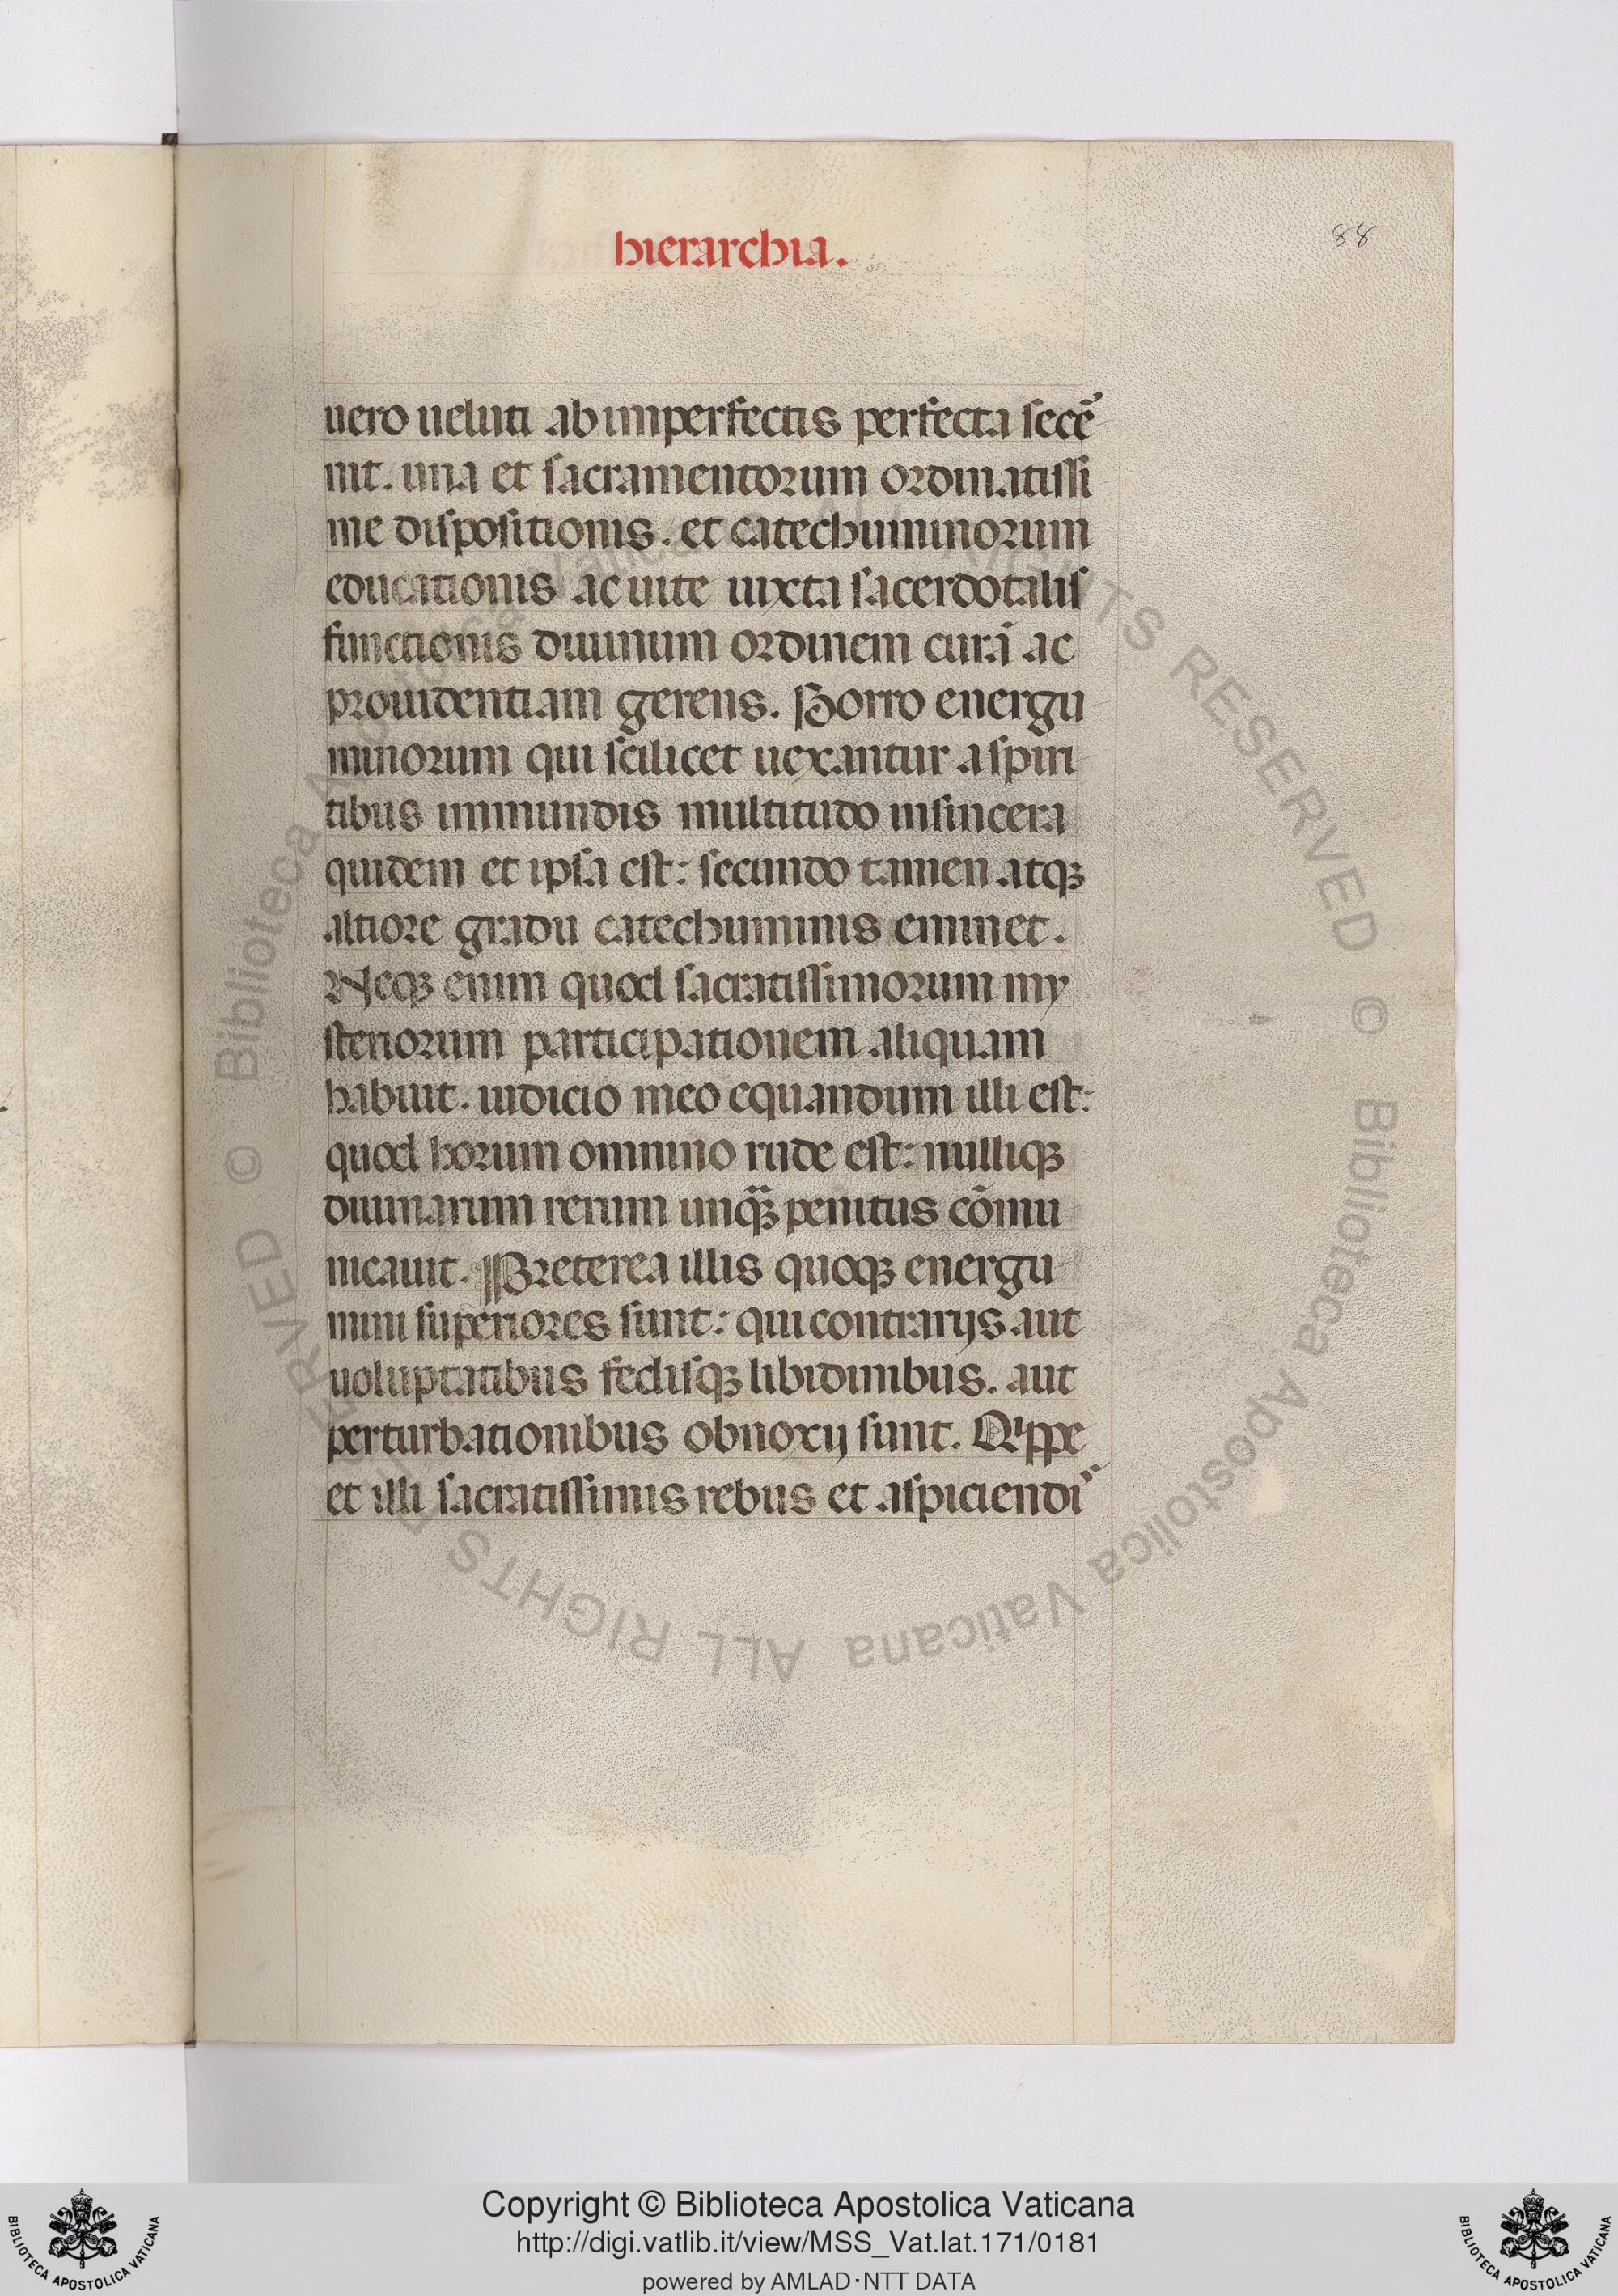 hierarchia.
88
uero ueluti ab imperfectis perfecta secē
nit. una et sacramentorum ordinatissi
me dispositionis. et catechuminorum
educationis ac uite iuxta sacerdotalis
functionis diuinum ordinem curā ac
prouidentiam gerens. Porro energu
minorum qui scilicet uexantur a spiri
tibus immundis multitudo insincera
quidem et ipsa est: secundo tamen atqꝫ
altiore gradu catechuminis eminet.
Neqꝫ enim quod sacratissimorum my
steriorum participationem aliquam
habuit. iudicio meo equandum illi est:
quod horum omnino rude est: nulliqꝫ
diuinarum rerum unq̈ꝫ penitus cōmu
nicauit. Preterea illis quoqꝫ energu
mini superiores sunt: qui contrarijs aut
uoluptatibus fedisqꝫ libidinibus. aut
perturbationibus obnoxij sunt. Quippe
et illi sacratissimis rebus et aspiciendī
© Biblioteca Apostolica Vaticana ALL RIGHTS RESERVED © Biblioteca Apostolica Vaticana ALL RIGHTS RESERVED
BIBLIOTECA APOSTOLICA VATICANA
Copyright © Biblioteca Apostolica Vaticana
http://digi.vatlib.it/view/MSS_Vat.lat.171/0181
powered by AMLAD·NTT DATA
BIBLIOTECA APOSTOLICA VATICANA